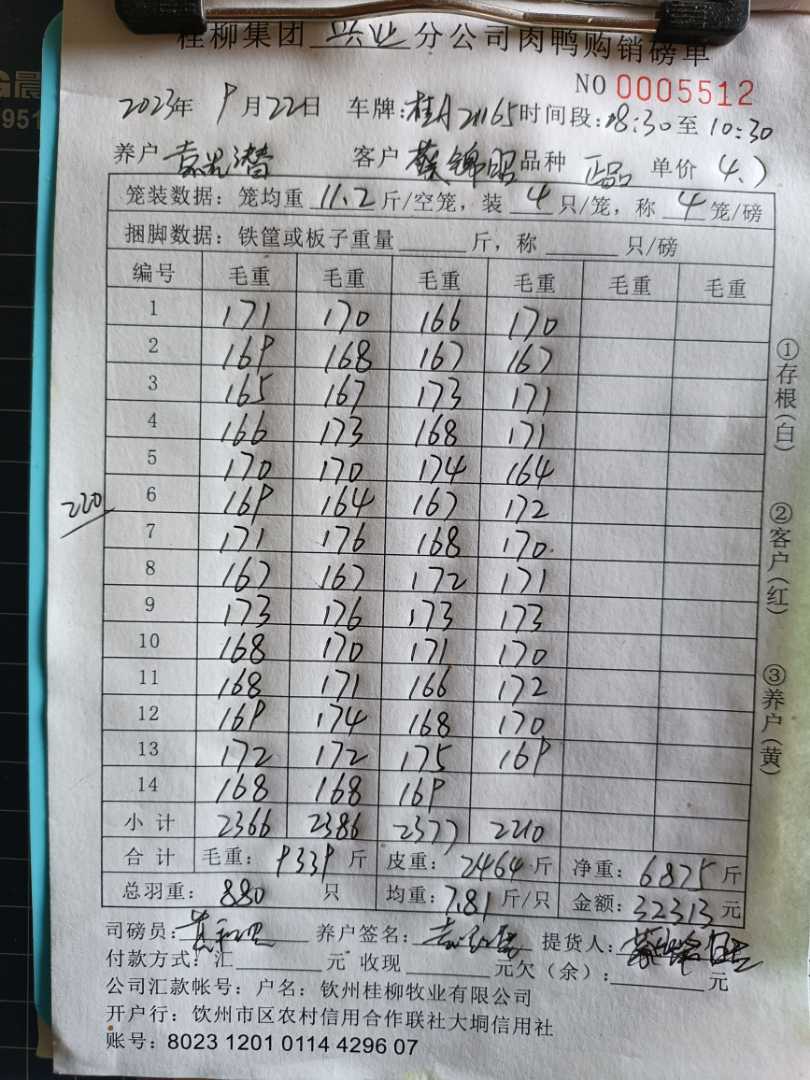 桂柳集团 兴业 分公司肉鸭购销磅单
NO 0005512
2023年 9月22日 车牌:桂A21165 时间段:08:30至10:30
养户 客户 蔡锦昭 品种 正品 单价 4.7
笼装数据:笼均重 11.2 斤/空笼,装 4 只/笼,称 4 笼/磅
捆脚数据:铁筐或板子重量 斤,称 只/磅
编号 毛重 毛重 毛重 毛重 毛重 毛重
1 171 170 166 170
2 169 168 167 167
3 165 167 173 171
4 166 173 168 171
5 170 170 174 164
6 169 164 167 172
7 171 176 168 170
8 167 167 172 171
9 173 176 173 173
10 168 170 171 170
11 168 171 166 172
12 169 174 168 170
13 172 172 175 169
14 168 168 169
小计 2366 2386 2377 2210
合计 毛重:9339斤 皮重:2464斤 净重:6875斤
总羽重:880 只 均重:7.81斤/只 金额:32313元
司磅员: 养户签名: 提货人:
付款方式:汇 元 收现 元欠(余): 元
公司汇款帐号:户名:钦州桂柳牧业有限公司
开户行:钦州市区农村信用合作联社大垌信用社
账号:8023 1201 0114 4296 07
220
①存根(白)
②客户(红)
③养户(黄)
951